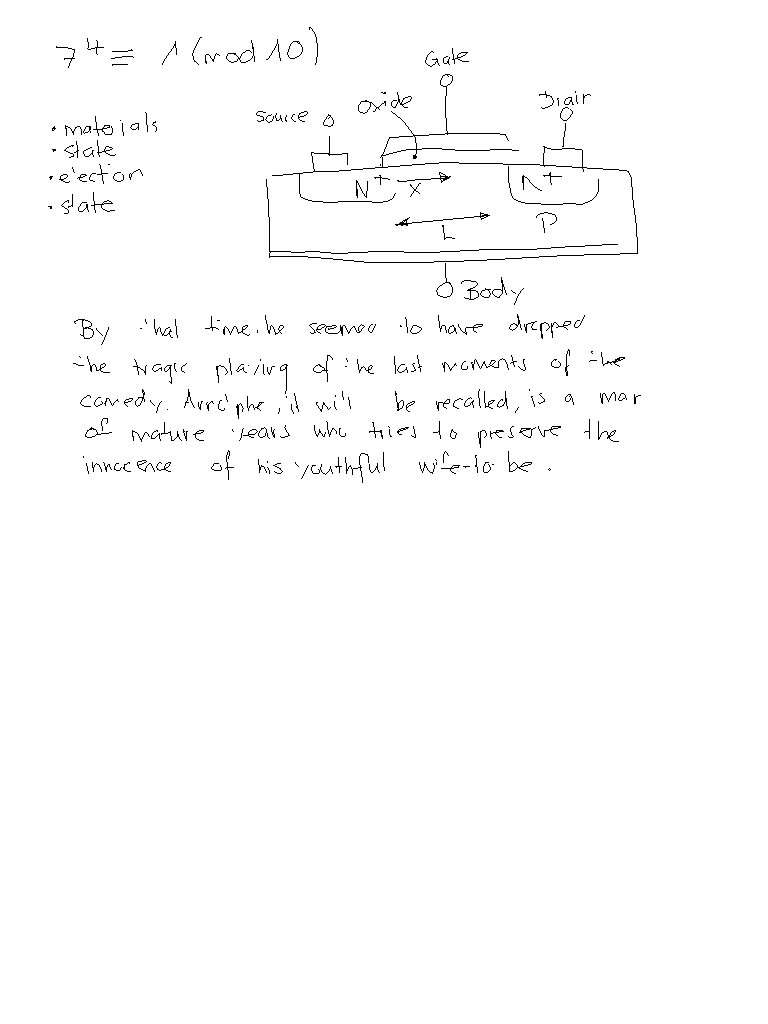 7⁴ ≡ 1 (mod 10)
• materials
• state
• election
• state
Gate
Source
oxide
Drain
N+
x
N+
L
P
Body
By that time he seemed to have dropped
the tragic playing of the last moments of the
comedy. Arnolphe, it will be recalled, is a man
of mature years who tries to preserve the
innocence of his youthful wife-to-be.